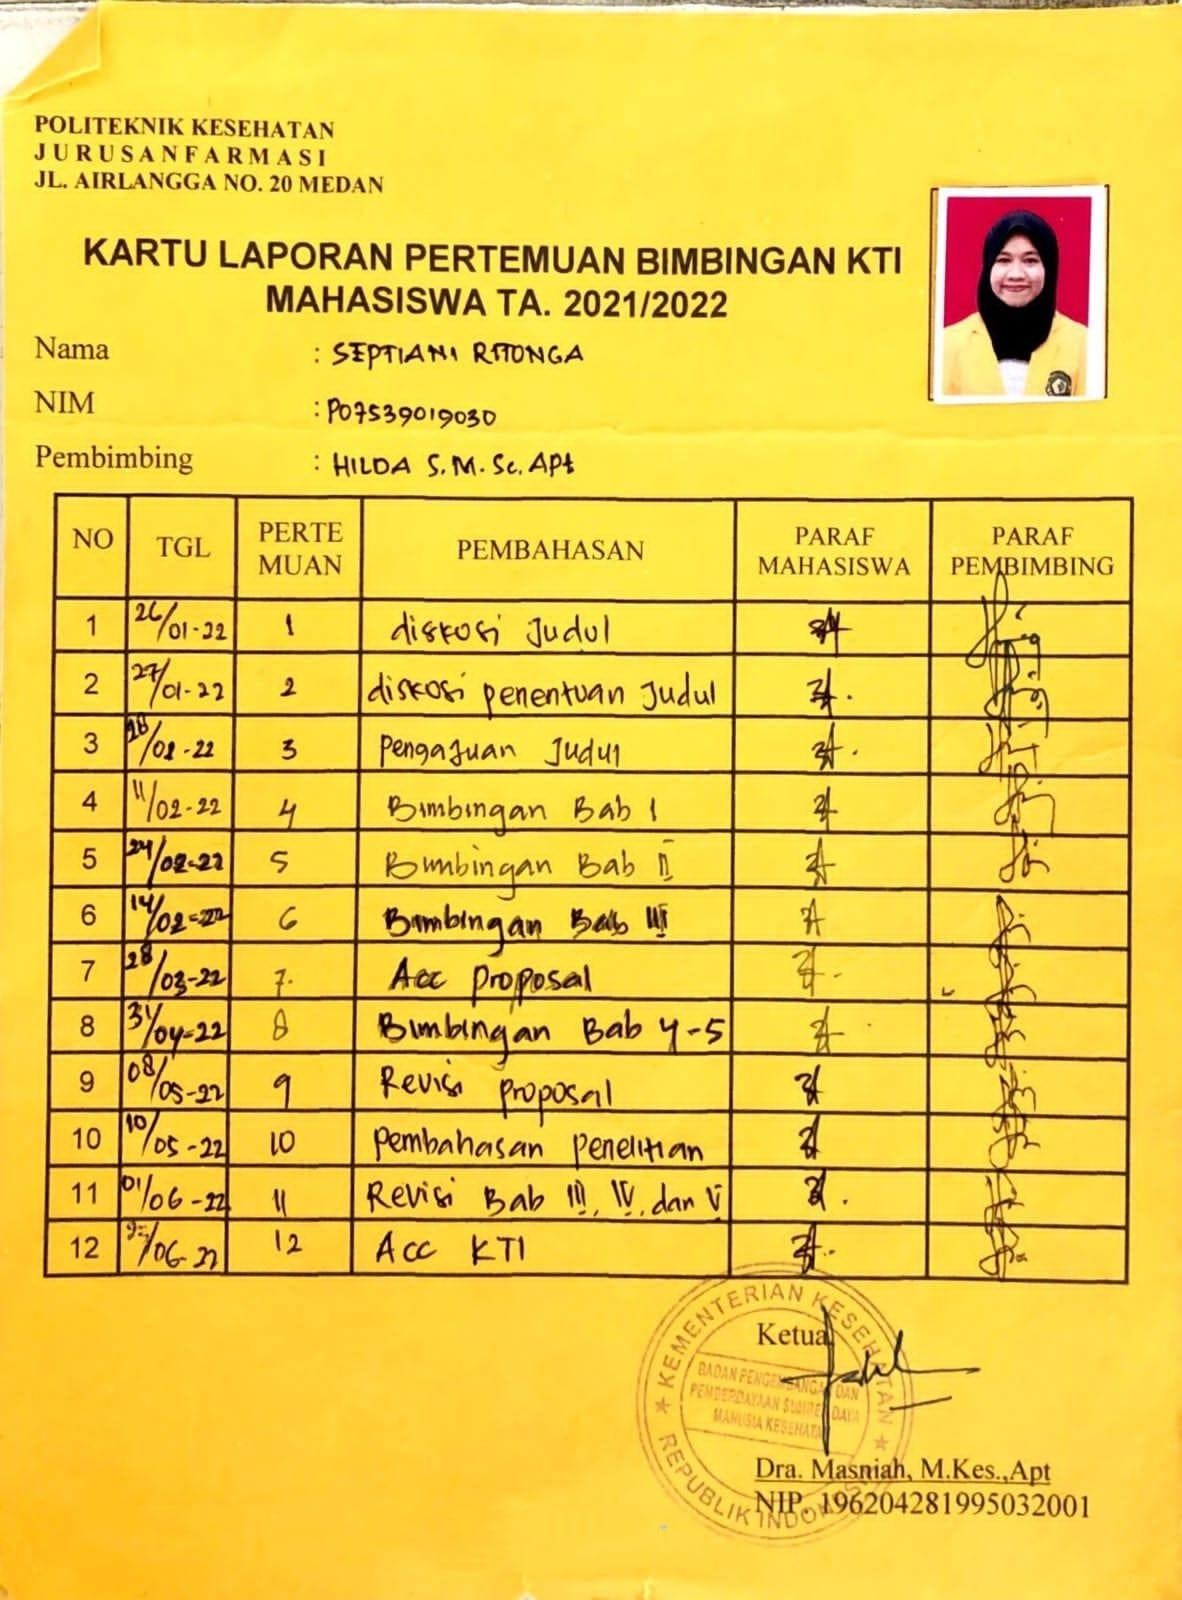 POLITEKNIK KESEHATAN
JURUSANFARMASI
JL. AIRLANGGA NO. 20 MEDAN
KARTU LAPORAN PERTEMUAN BIMBINGAN KTI
MAHASISWA TA. 2021/2022
Nama : SEPTIANI RITONGA
NIM : P07539019030
Pembimbing : HILDA S. M. Sc. APt
NO TGL PERTE MUAN PEMBAHASAN PARAF MAHASISWA PARAF PEMBIMBING
1 26/01-22 1 diskosi Judul
2 27/01-22 2 diskosi penentuan Judul
3 28/01-22 3 Pengajuan Judul
4 11/02-22 4 Bimbingan Bab I
5 24/02-22 5 Bimbingan Bab II
6 14/02-22 6 Bimbingan Bab III
7 28/03-22 7. Acc proposal
8 31/04-22 8 Bimbingan Bab 4-5
9 08/05-22 9 Revisi proposal
10 10/05-22 10 Pembahasan Penelitian
11 01/06-22 11 Revisi Bab III, IV, dan V
12 /06-22 12 Acc KTI
Ketua
KEMENTERIAN KESEHATAN
BADAN PENGEMBANGAN DAN
PEMBERDAYAAN SUMBER DAYA
MANUSIA KESEHATAN
REPUBLIK INDONESIA
Dra. Masniah, M.Kes.,Apt
NIP. 196204281995032001